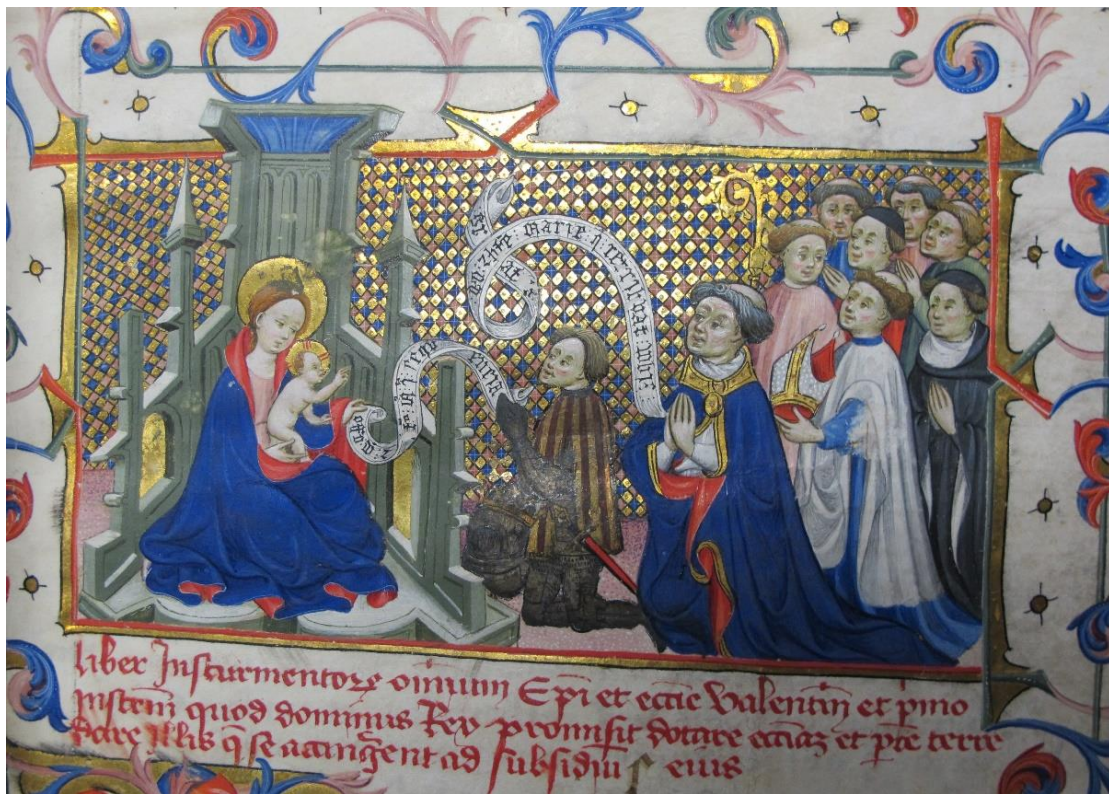 marie
liber Insturmentoꝝ oīnium Ep̄i et eccīe Valentiñ et p̄mo
Instr̄m quod dominus Rex promisit dotare eccīaꝫ et p̄te terre
dare illis q̄ se accingent ad subsidiū eius